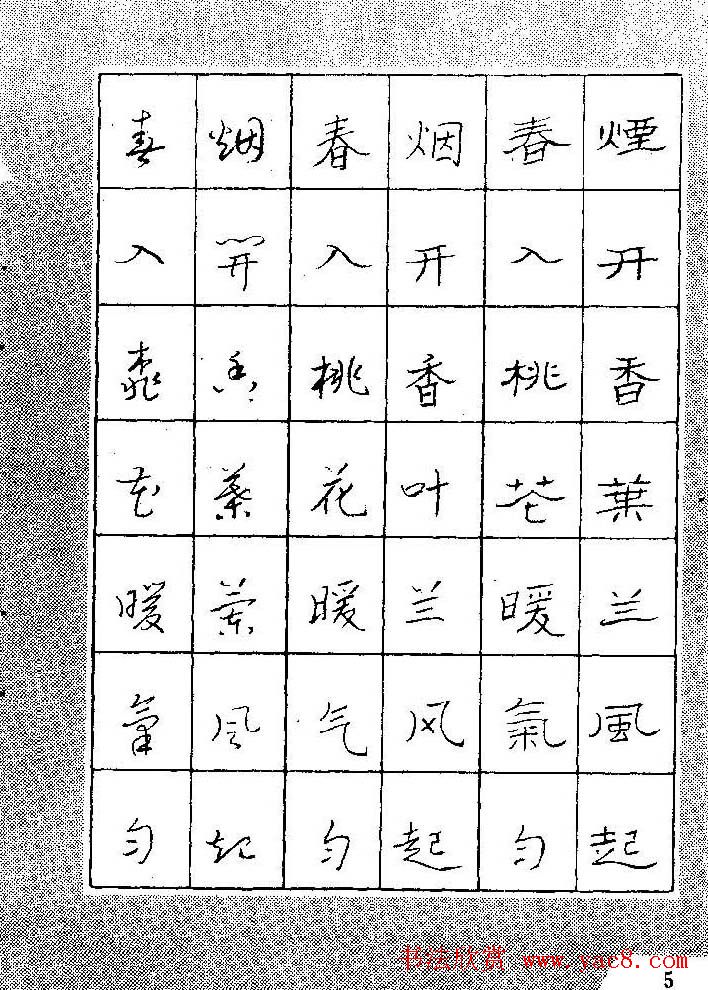 煙开香葉兰風起
春入桃花暖氣匀
烟开香叶兰风起
春入桃花暖气匀
烟開香葉蘭風起
春入桃花暖氣匀
书法欣赏 www.yac8.com
5